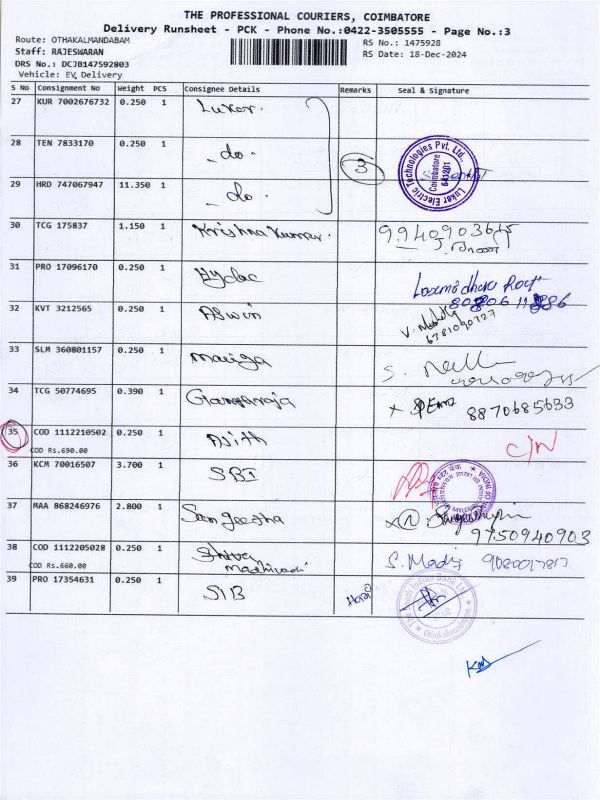 THE PROFESSIONAL COURIERS, COIMBATORE
Delivery Runsheet - PCK - Phone No.:0422-3505555 - Page No.:3
Route: OTHAKALMANDABAM
RS No.: 1475928
Staff: RAJESWARAN
RS Date: 18-Dec-2024
DRS No.: DCJB147592803
Vehicle: EV Delivery
S No Consignment No Weight PCS Consignee Details Remarks Seal & Signature
27 KUR 7002676732 0.250 1 Luker.
28 TEN 7833170 0.250 1 - do - 3
Luker Electric Technologies Pvt. Ltd.
Coimbatore
641201
29 HRD 747067947 11.350 1 - do -
30 TCG 175837 1.150 1 Krishna Kumar.
31 PRO 17096170 0.250 1 Hydac
32 KVT 3212565 0.250 1 Aswin
33 SLM 360801157 0.250 1
34 TCG 50774695 0.390 1 8870685633
35 COD 1112210502 0.250 1 Ajith C/N
COD Rs.690.00
36 KCM 70016507 3.700 1 SBI
37 MAA 868246976 2.800 1 Sangeetha
9750940903
38 COD 1112205028 0.250 1 Shiva S. Madhi
COD Rs.660.00
39 PRO 17354631 0.250 1 SIB Hari
The South Indian Bank Ltd.
Othakalmandapam